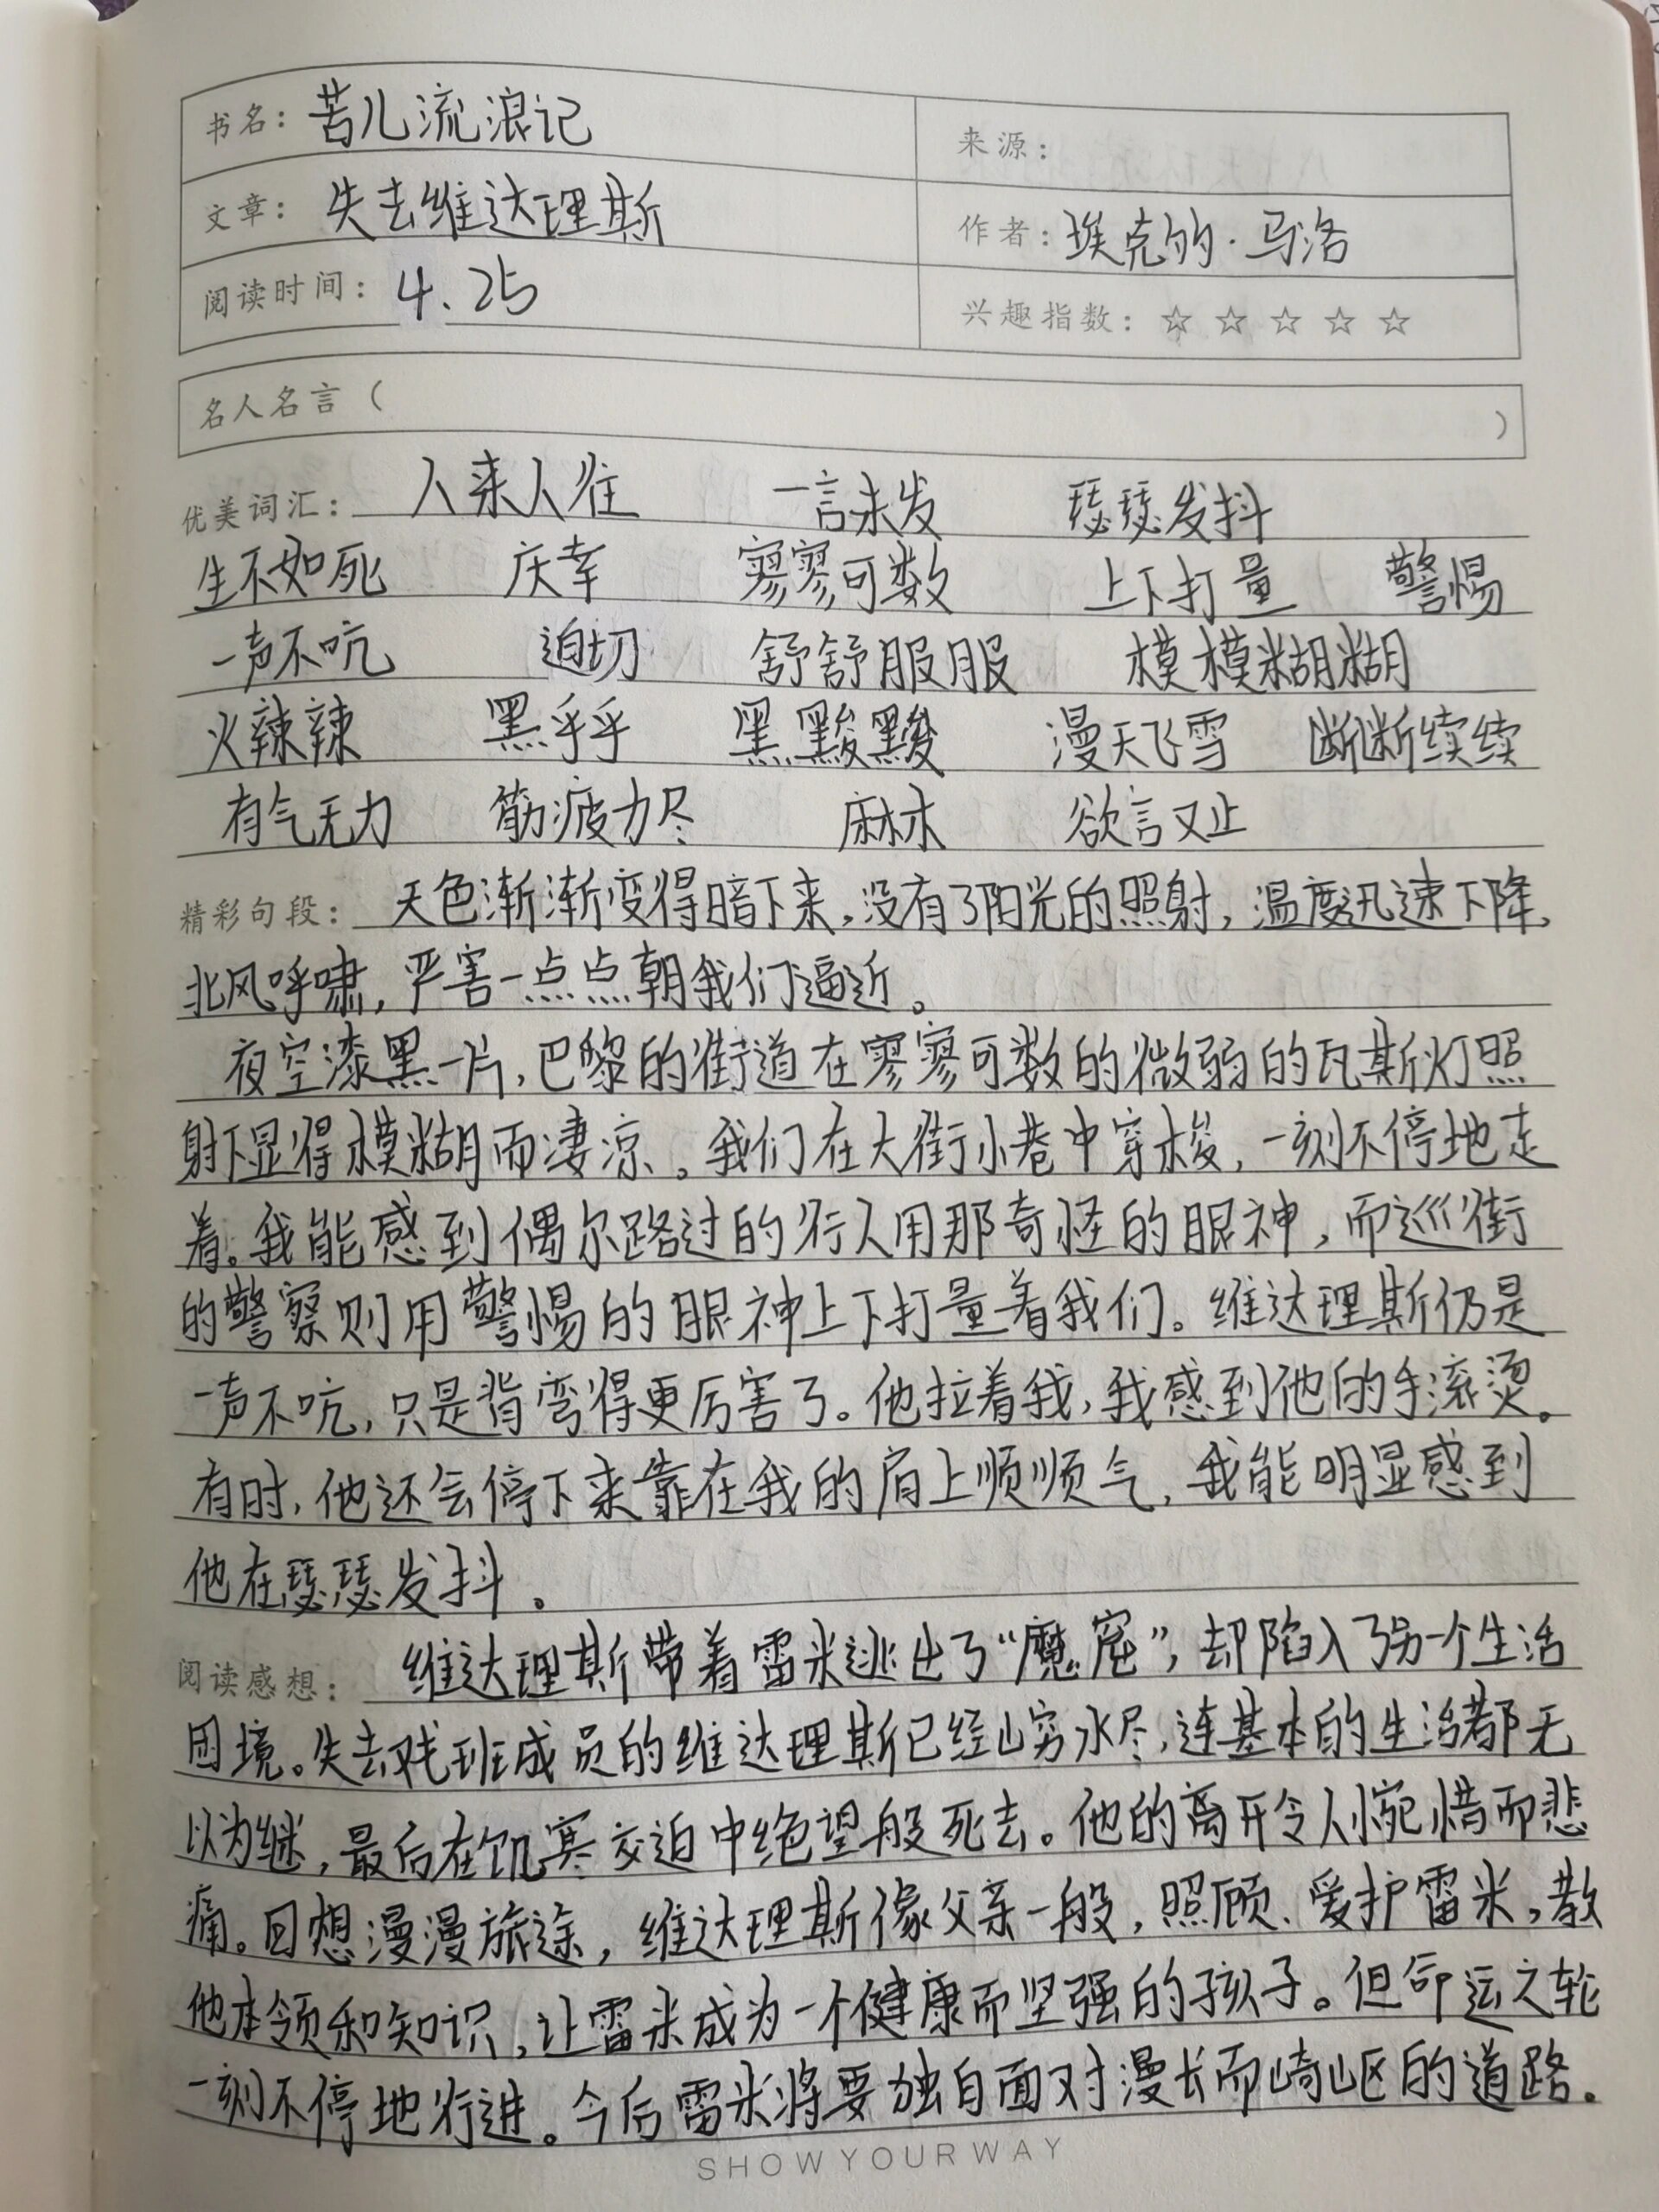 书名：苦儿流浪记 来源：
文章：失去维达理斯 作者：埃克的·马洛
阅读时间：4.25 兴趣指数：☆☆☆☆☆
名人名言（ ）
优美词汇：人来人往 一言未发 瑟瑟发抖
生不如死 庆幸 寥寥可数 上下打量 警惕
一声不吭 迫切 舒舒服服 模模糊糊
火辣辣 黑乎乎 黑黢黢 漫天飞雪 断断续续
有气无力 筋疲力尽 麻木 欲言又止
精彩句段：天色渐渐变得暗下来，没有了阳光的照射，温度迅速下降，
北风呼啸，严害一点点朝我们逼近。
夜空漆黑一片，巴黎的街道在寥寥可数的微弱的瓦斯灯照
射下显得模糊而凄凉。我们在大街小巷中穿梭，一刻不停地走
着。我能感到偶尔路过的行人用那奇怪的眼神，而巡街
的警察则用警惕的眼神上下打量着我们。维达理斯仍是
一声不吭，只是背弯得更厉害了。他拉着我，我感到他的手滚烫。
有时，他还会停下来靠在我的肩上顺顺气，我能明显感到
他在瑟瑟发抖。
阅读感想：维达理斯带着雷米逃出了“魔窟”，却陷入了另一个生活
困境。失去戏班成员的维达理斯已经山穷水尽，连基本的生活都无
以为继，最后在饥寒交迫中绝望般死去。他的离开令人惋惜而悲
痛。回想漫漫旅途，维达理斯像父亲一般，照顾、爱护雷米，教
他本领和知识，让雷米成为一个健康而坚强的孩子。但命运之轮
一刻不停地行进。今后雷米将要独自面对漫长而崎岖的道路。
SHOW YOUR WAY